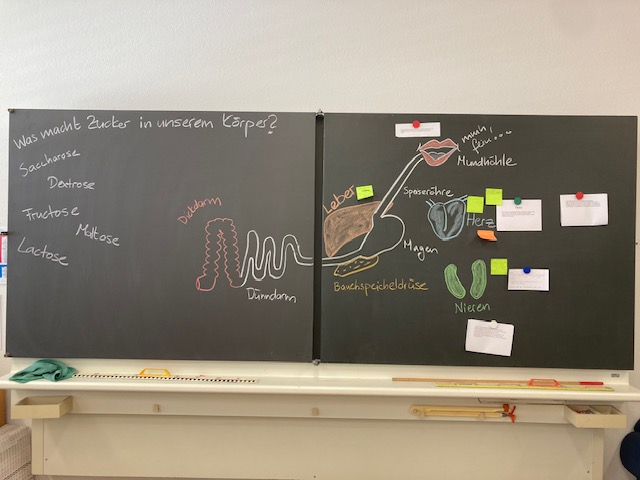 Was macht Zucker in unserem Körper?
Saccharose
Dextrose
Fructose
Maltose
Lactose
Dickdarm
Dünndarm
Leber
Mundhöhle
Speiseröhre
Herz
Magen
Bauchspeicheldrüse
Nieren